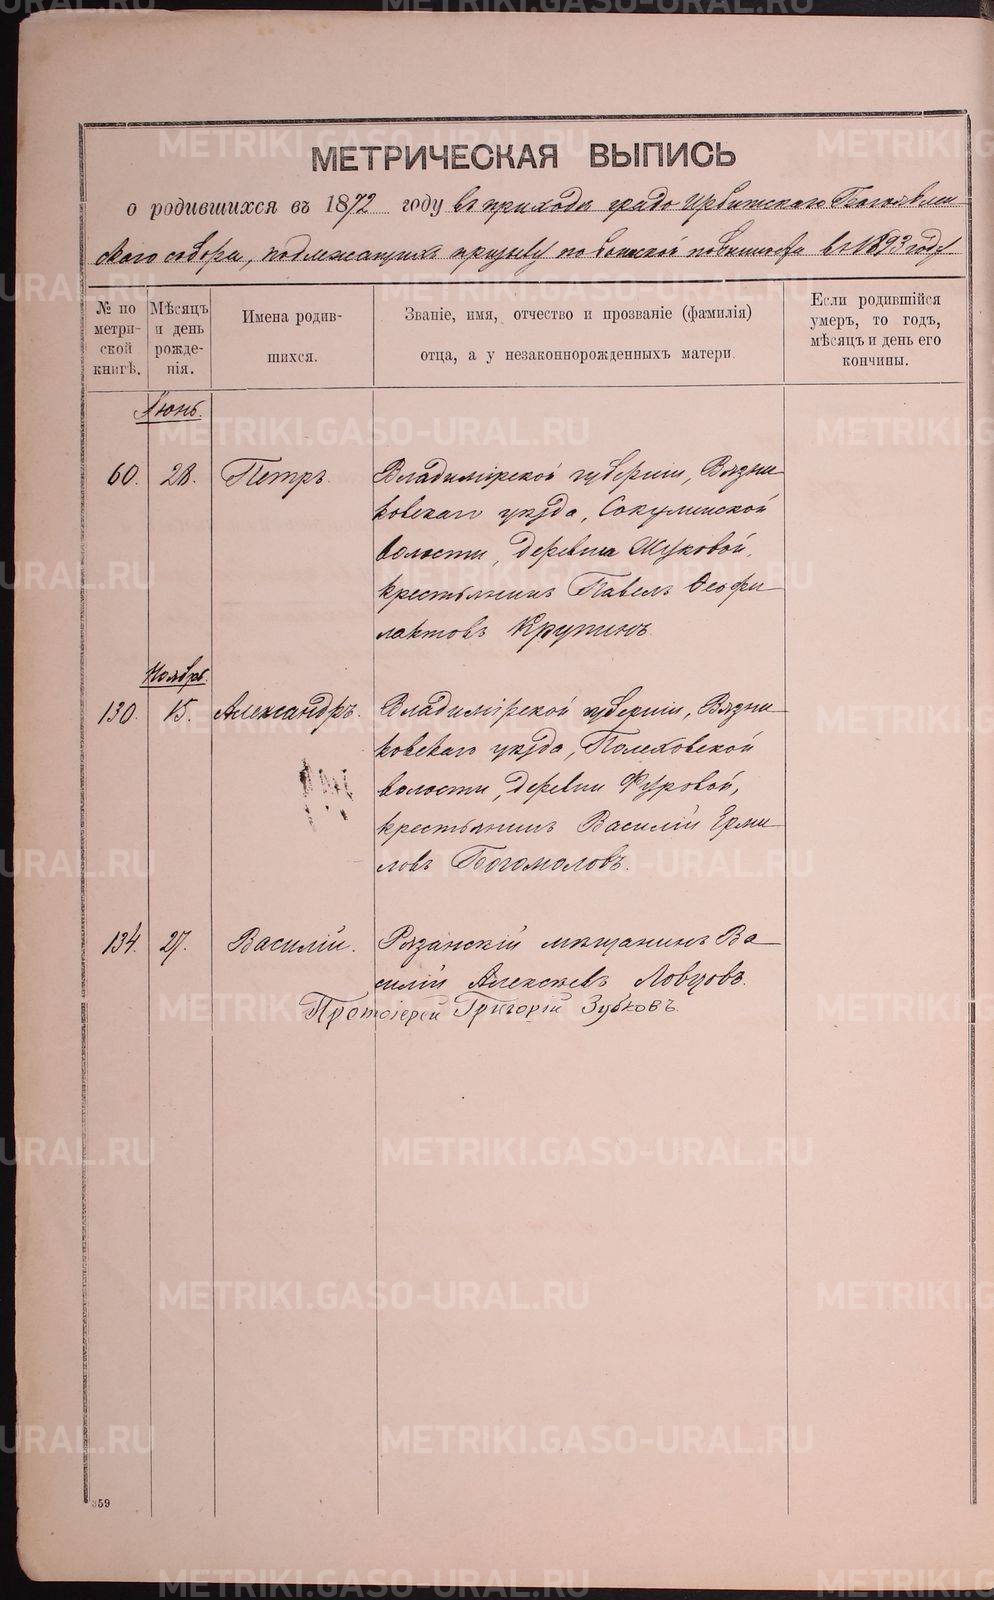 МЕТРИЧЕСКАЯ ВЫПИСЬ
о родившихся въ 1872 году въ приходѣ градо Ирбитскаго Богоявлен
скаго собора, подлежащихъ призыву по воинской повинности въ 1893 году
№ по метри-ской книгѣ.
Мѣсяцъ и день рожде-нія.
Имена родив-шихся.
Званіе, имя, отчество и прозваніе (фамилія)
отца, а у незаконнорожденныхъ матери.
Если родившійся умеръ, то годъ, мѣсяцъ и день его кончины.
Іюнь.
60. 28. Петръ. Владимірской губерніи, Вязни-
ковскаго уѣзда, Сакулинской
волости, деревни Жуковой,
крестьянинъ Павелъ Ѳеофи-
лактовъ Крупинъ
Ноябрь.
130. 15. Александръ. Владимірской губерніи, Вязни-
ковскаго уѣзда, Палеховской
волости, деревни Фуровой,
крестьянинъ Василій Ерми-
ловъ Богомоловъ.
134. 27. Василій. Рязанскій мѣщанинъ Ва-
силій Алексѣевъ Ловцовъ.
Протоіерей Григорій Зубковъ.
359
METRIKI.GASO-URAL.RU